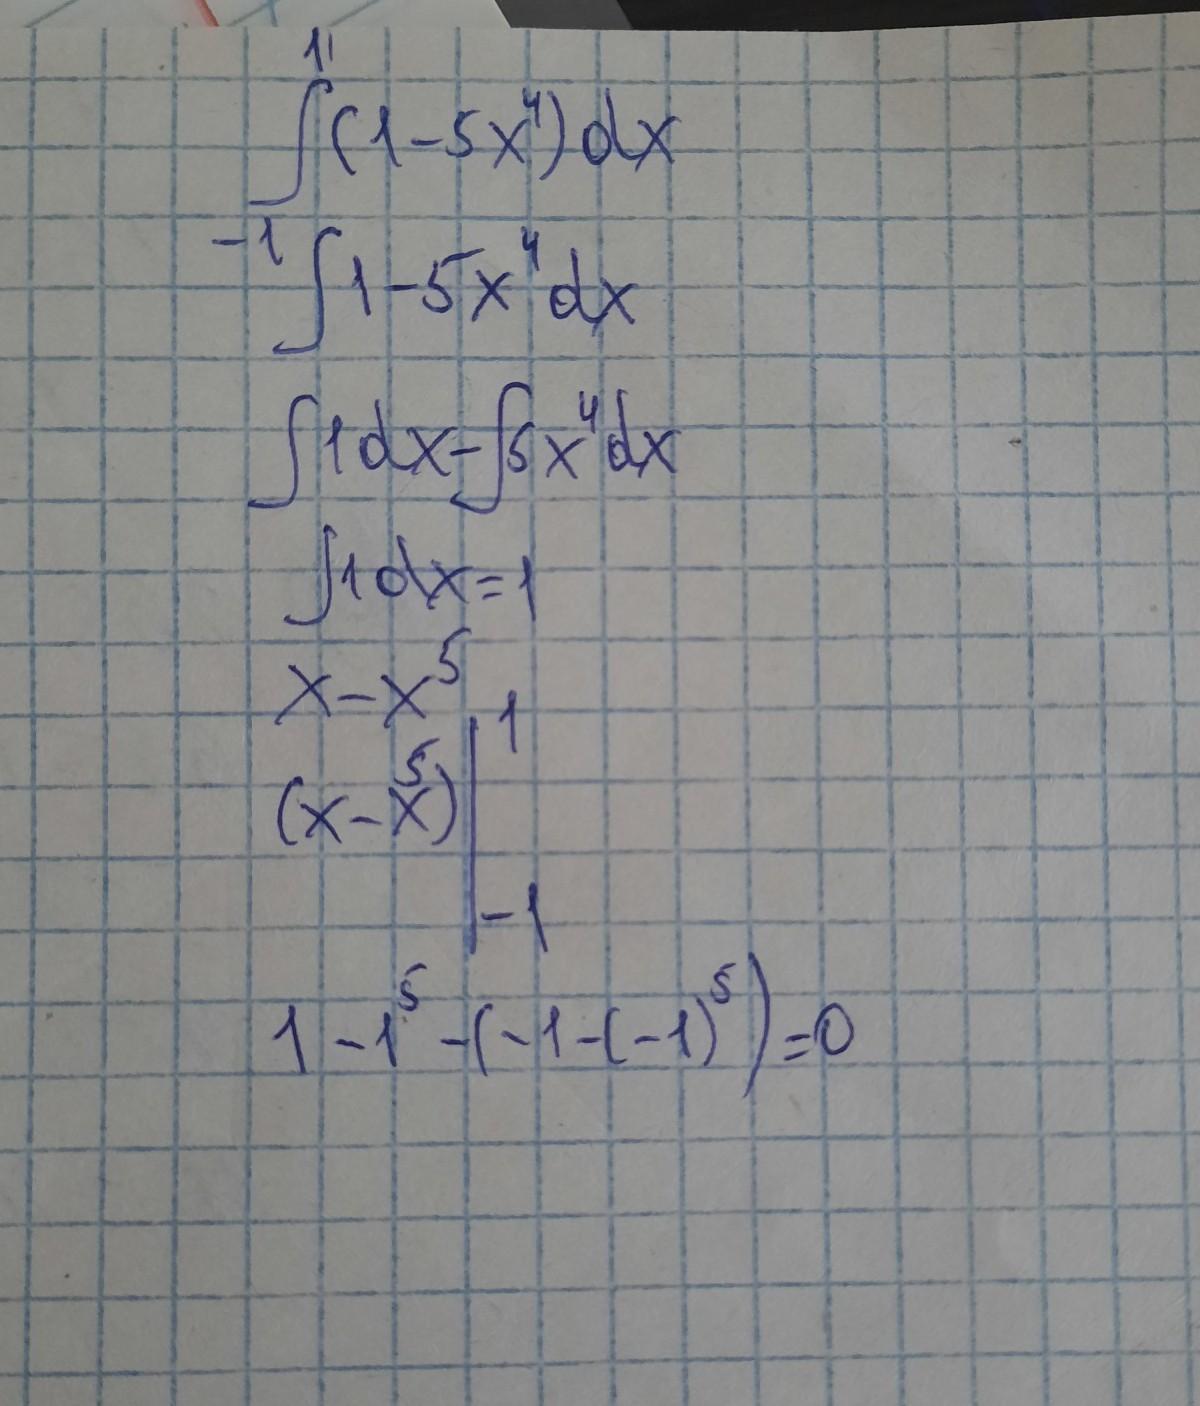 1
∫(1-5x⁴)dx
-1
∫1-5x⁴dx
∫1dx-∫5x⁴dx
∫1dx=1
x-x⁵
(x-x⁵)|
1
-1
1-1⁵-(-1-(-1)⁵)=0